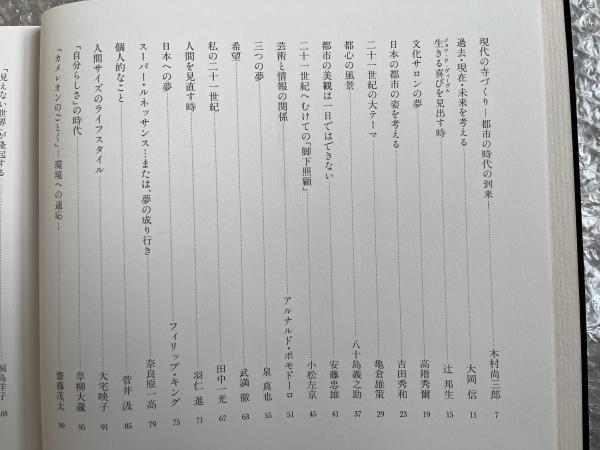 現代の寺づくり―都市の時代の到来― 木村尚三郎 7
過去・現在・未来を考える 大岡 信 11
生きる喜びを見出す時 辻 邦生 15
文化サロンの夢 高階秀爾 19
日本の都市の姿を考える 吉田秀和 23
二十一世紀の大テーマ 亀倉雄策 29
都心の風景 八十島義之助 37
都市の美観は一日ではできない 安藤忠雄 41
二十一世紀へむけての「脚下照顧」 小松左京 45
芸術と情報の関係 アルナルド・ポモドーロ 51
三つの夢 泉 真也 55
希望 武満 徹 63
私の二十一世紀 田中一光 67
人間を見直す時 羽仁 進 71
日本への夢 フィリップ・キング 75
スーパー・ルネッサンス…または、夢の成り行き 奈良原一高 79
個人的なこと 菅井 汲 85
人間サイズのライフスタイル 大宅映子 91
「自分らしさ」の時代 草柳大蔵 95
「カメレオンのごとく」―環境への適応― 齋藤茂太 99
「見えない世界」が隆起する